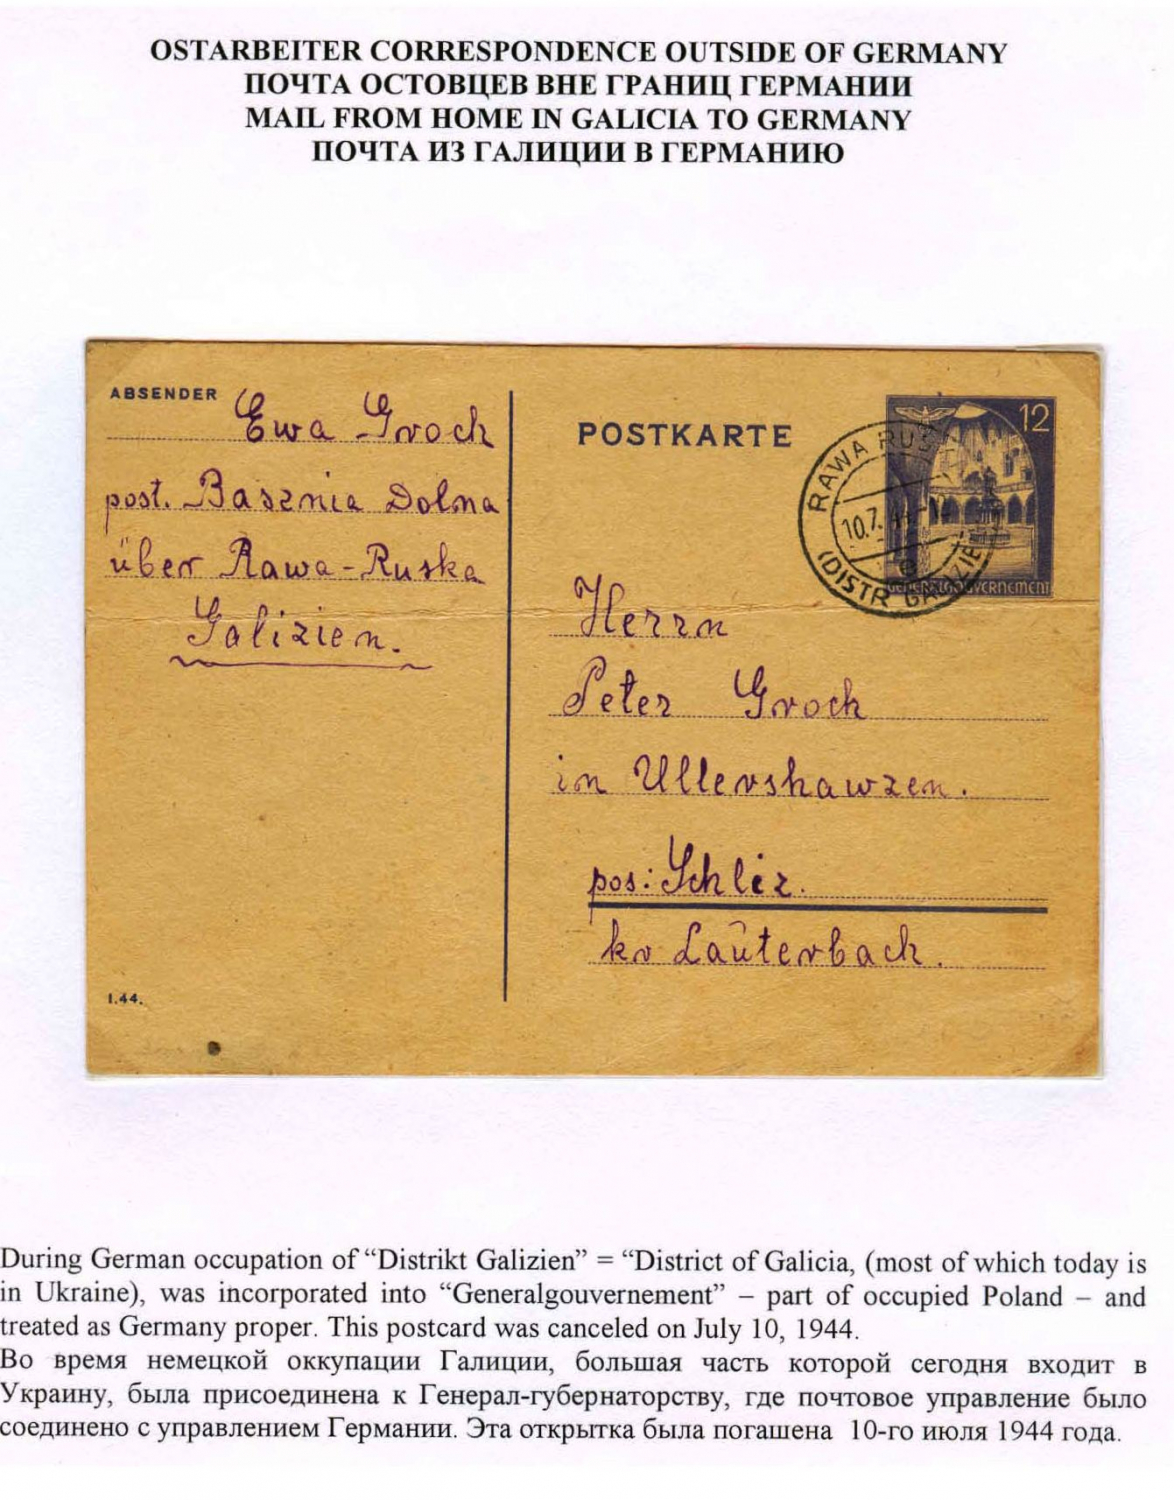 OSTARBEITER CORRESPONDENCE OUTSIDE OF GERMANY
ПОЧТА ОСТОВЦЕВ ВНЕ ГРАНИЦ ГЕРМАНИИ
MAIL FROM HOME IN GALICIA TO GERMANY
ПОЧТА ИЗ ГАЛИЦИИ В ГЕРМАНИЮ
ABSENDER Ewa Groch
post. Basznia Dolna
über Rawa-Ruska
Galizien.
1.44.
POSTKARTE
12
GENERALGOUVERNEMENT
RAWA RUSKA
10.7.44
(DISTR GALIZIEN)
Herrn
Peter Groch
in Ullershawzen.
pos: Schliz.
kr Lauterbach.
During German occupation of “Distrikt Galizien” = “District of Galicia, (most of which today is
in Ukraine), was incorporated into “Generalgouvernement” – part of occupied Poland – and
treated as Germany proper. This postcard was canceled on July 10, 1944.
Во время немецкой оккупации Галиции, большая часть которой сегодня входит в
Украину, была присоединена к Генерал-губернаторству, где почтовое управление было
соединено с управлением Германии. Эта открытка была погашена 10-го июля 1944 года.